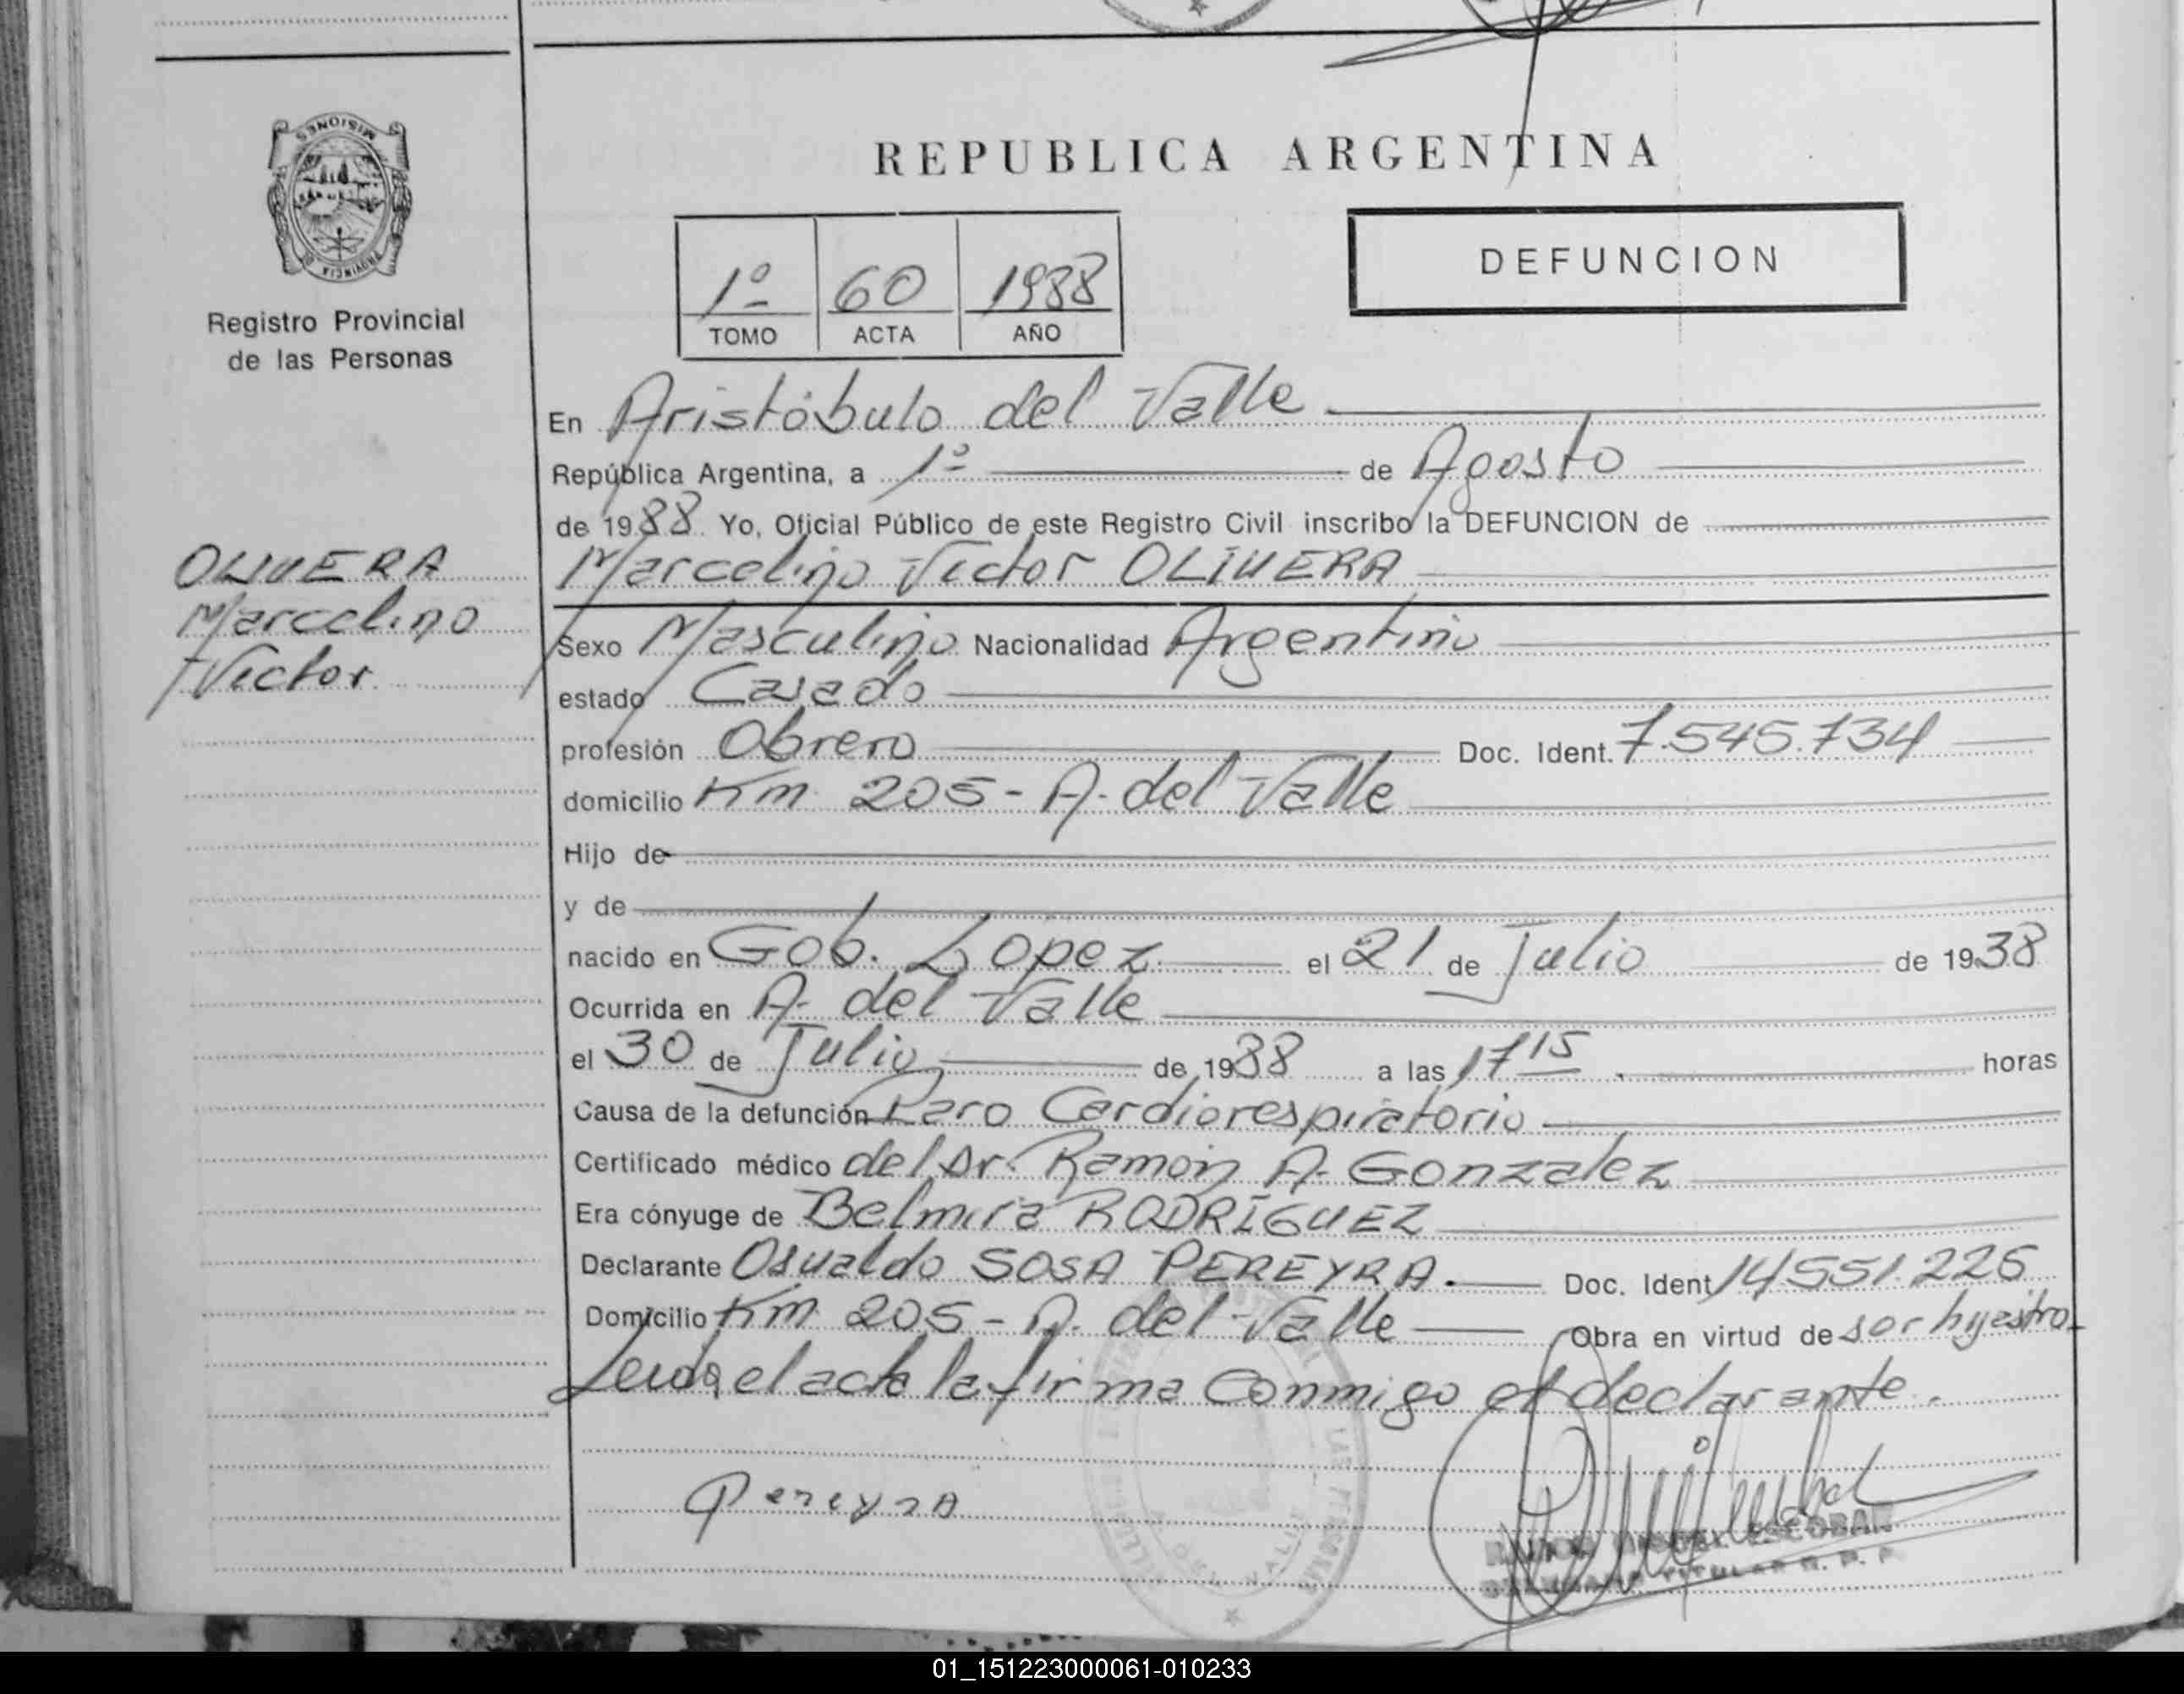 MISIONES
PROVINCIA D
Registro Provincial
de las Personas
OLIVERA
Marcelino
Victor
REPUBLICA ARGENTINA
1º 60 1988
TOMO ACTA AÑO
DEFUNCION
En Aristóbulo del Valle
República Argentina, a 1º de Agosto
de 1988 Yo, Oficial Público de este Registro Civil inscribo la DEFUNCION de
Marcelino Victor OLIVERA
Sexo Masculino Nacionalidad Argentino
estado Casado
profesión Obrero Doc. Ident. 7.545.734
domicilio Km 205 - A. del Valle
Hijo de
y de
nacido en Gob. Lopez el 21 de Julio de 1938
Ocurrida en A. del Valle
el 30 de Julio de 1988 a las 17 15 horas
Causa de la defunción Paro Cardiorespiratorio
Certificado médico del Dr. Ramón A. Gonzalez
Era cónyuge de Belmira RODRÍGUEZ
Declarante Osvaldo SOSA PEREYRA. Doc. Ident 14551.225
Domicilio Km 205 - A. del Valle Obra en virtud de ser hijastro
Leida el acta la firma Conmigo el declarante.
Pereyra
ESCOBAR
TITULAR R. P. P.
01_151223000061-010233